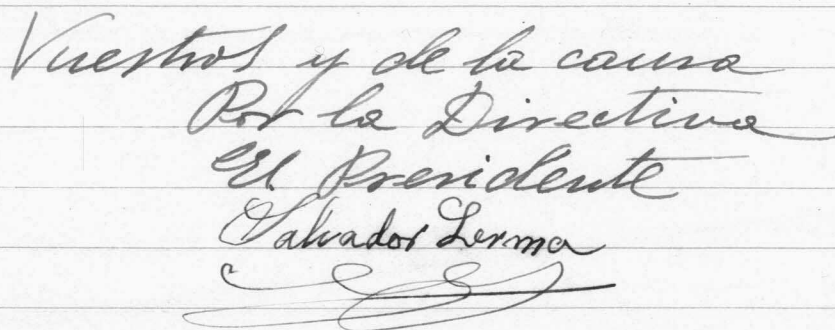 Vuestros y de la causa
Por la Directiva
El Presidente
Salvador Lerma